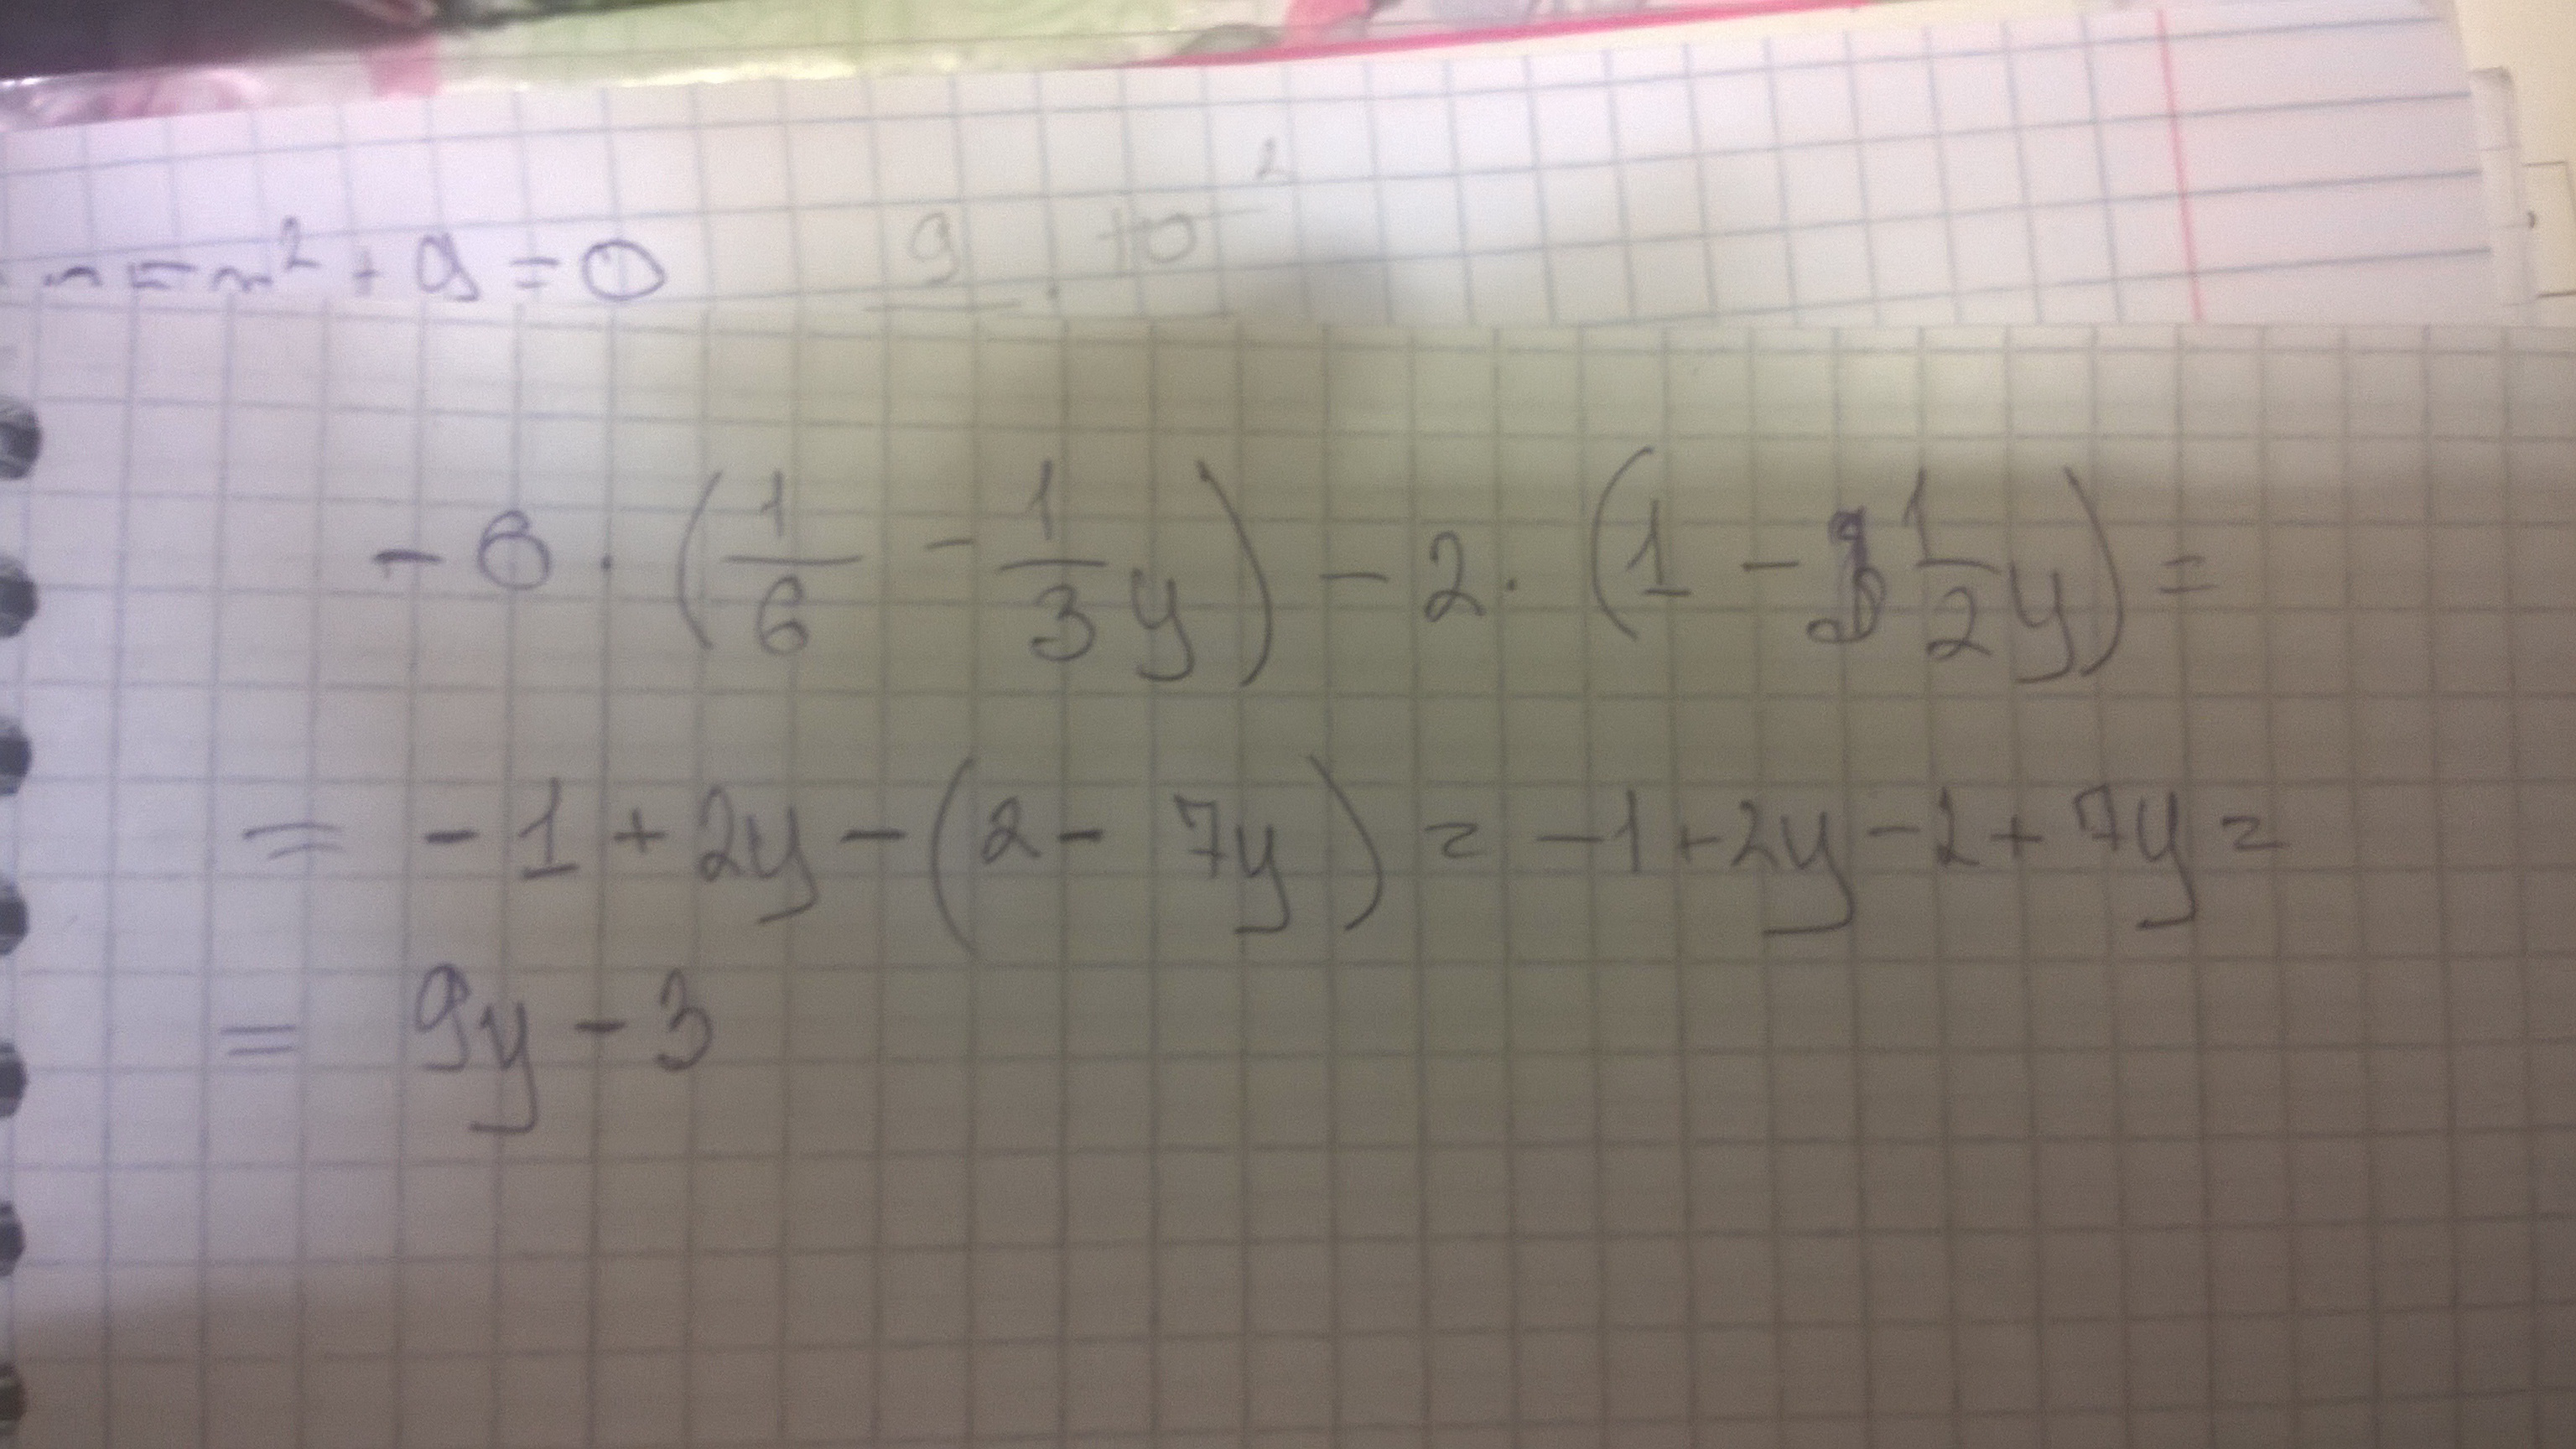 = m² + 9 = 0 9 · 10 ²
- 6 · (1/6 - 1/3 y) - 2 · (1 - 3 1/2 y) =
= - 1 + 2y - (2 - 7y) = - 1 + 2y - 2 + 7y =
= 9y - 3